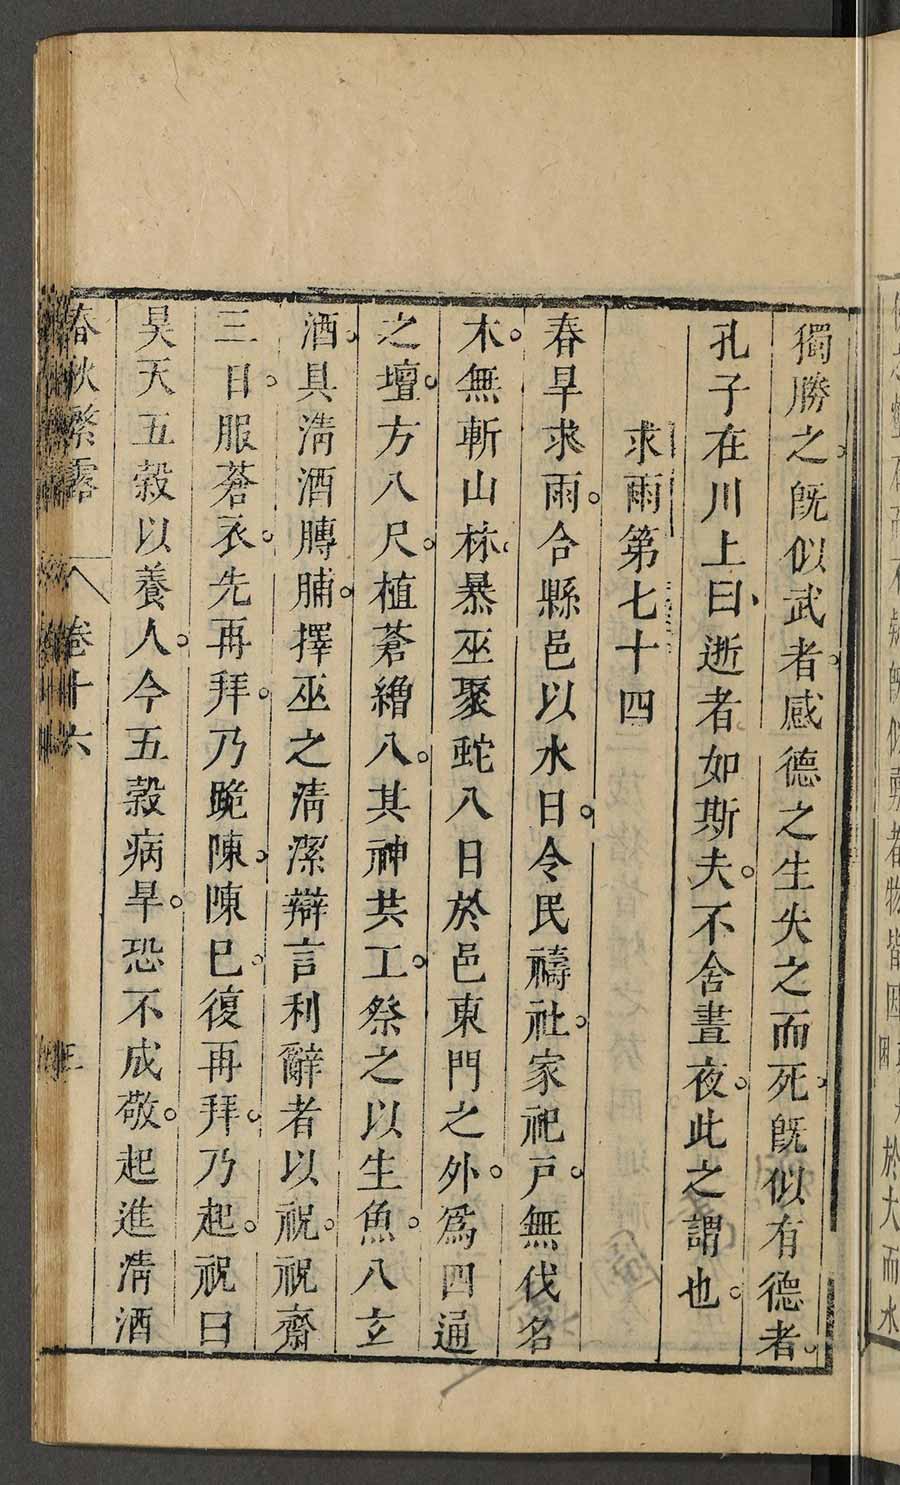 獨勝之。旣似武者。感德之生失之而死。旣似有德者。
孔子在川上曰、逝者如斯夫。不舍晝夜。此之謂也。
求雨第七十四
春旱求雨。令縣邑以水日。令民禱社。家祀戶。無伐名
木。無斬山林。暴巫聚蛇八日於邑東門之外。爲四通
之壇。方八尺。植蒼繒八。其神共工。祭之以生魚。八玄
酒。具淸酒膊脯。擇巫之淸潔辯言利辭者以祝。祝齋
三日。服蒼衣。先再拜。乃跪陳。陳已。復再拜。乃起。祝曰
昊天五穀以養人。今五穀病旱。恐不成敬。起進淸酒
春秋繁露 卷十六 三